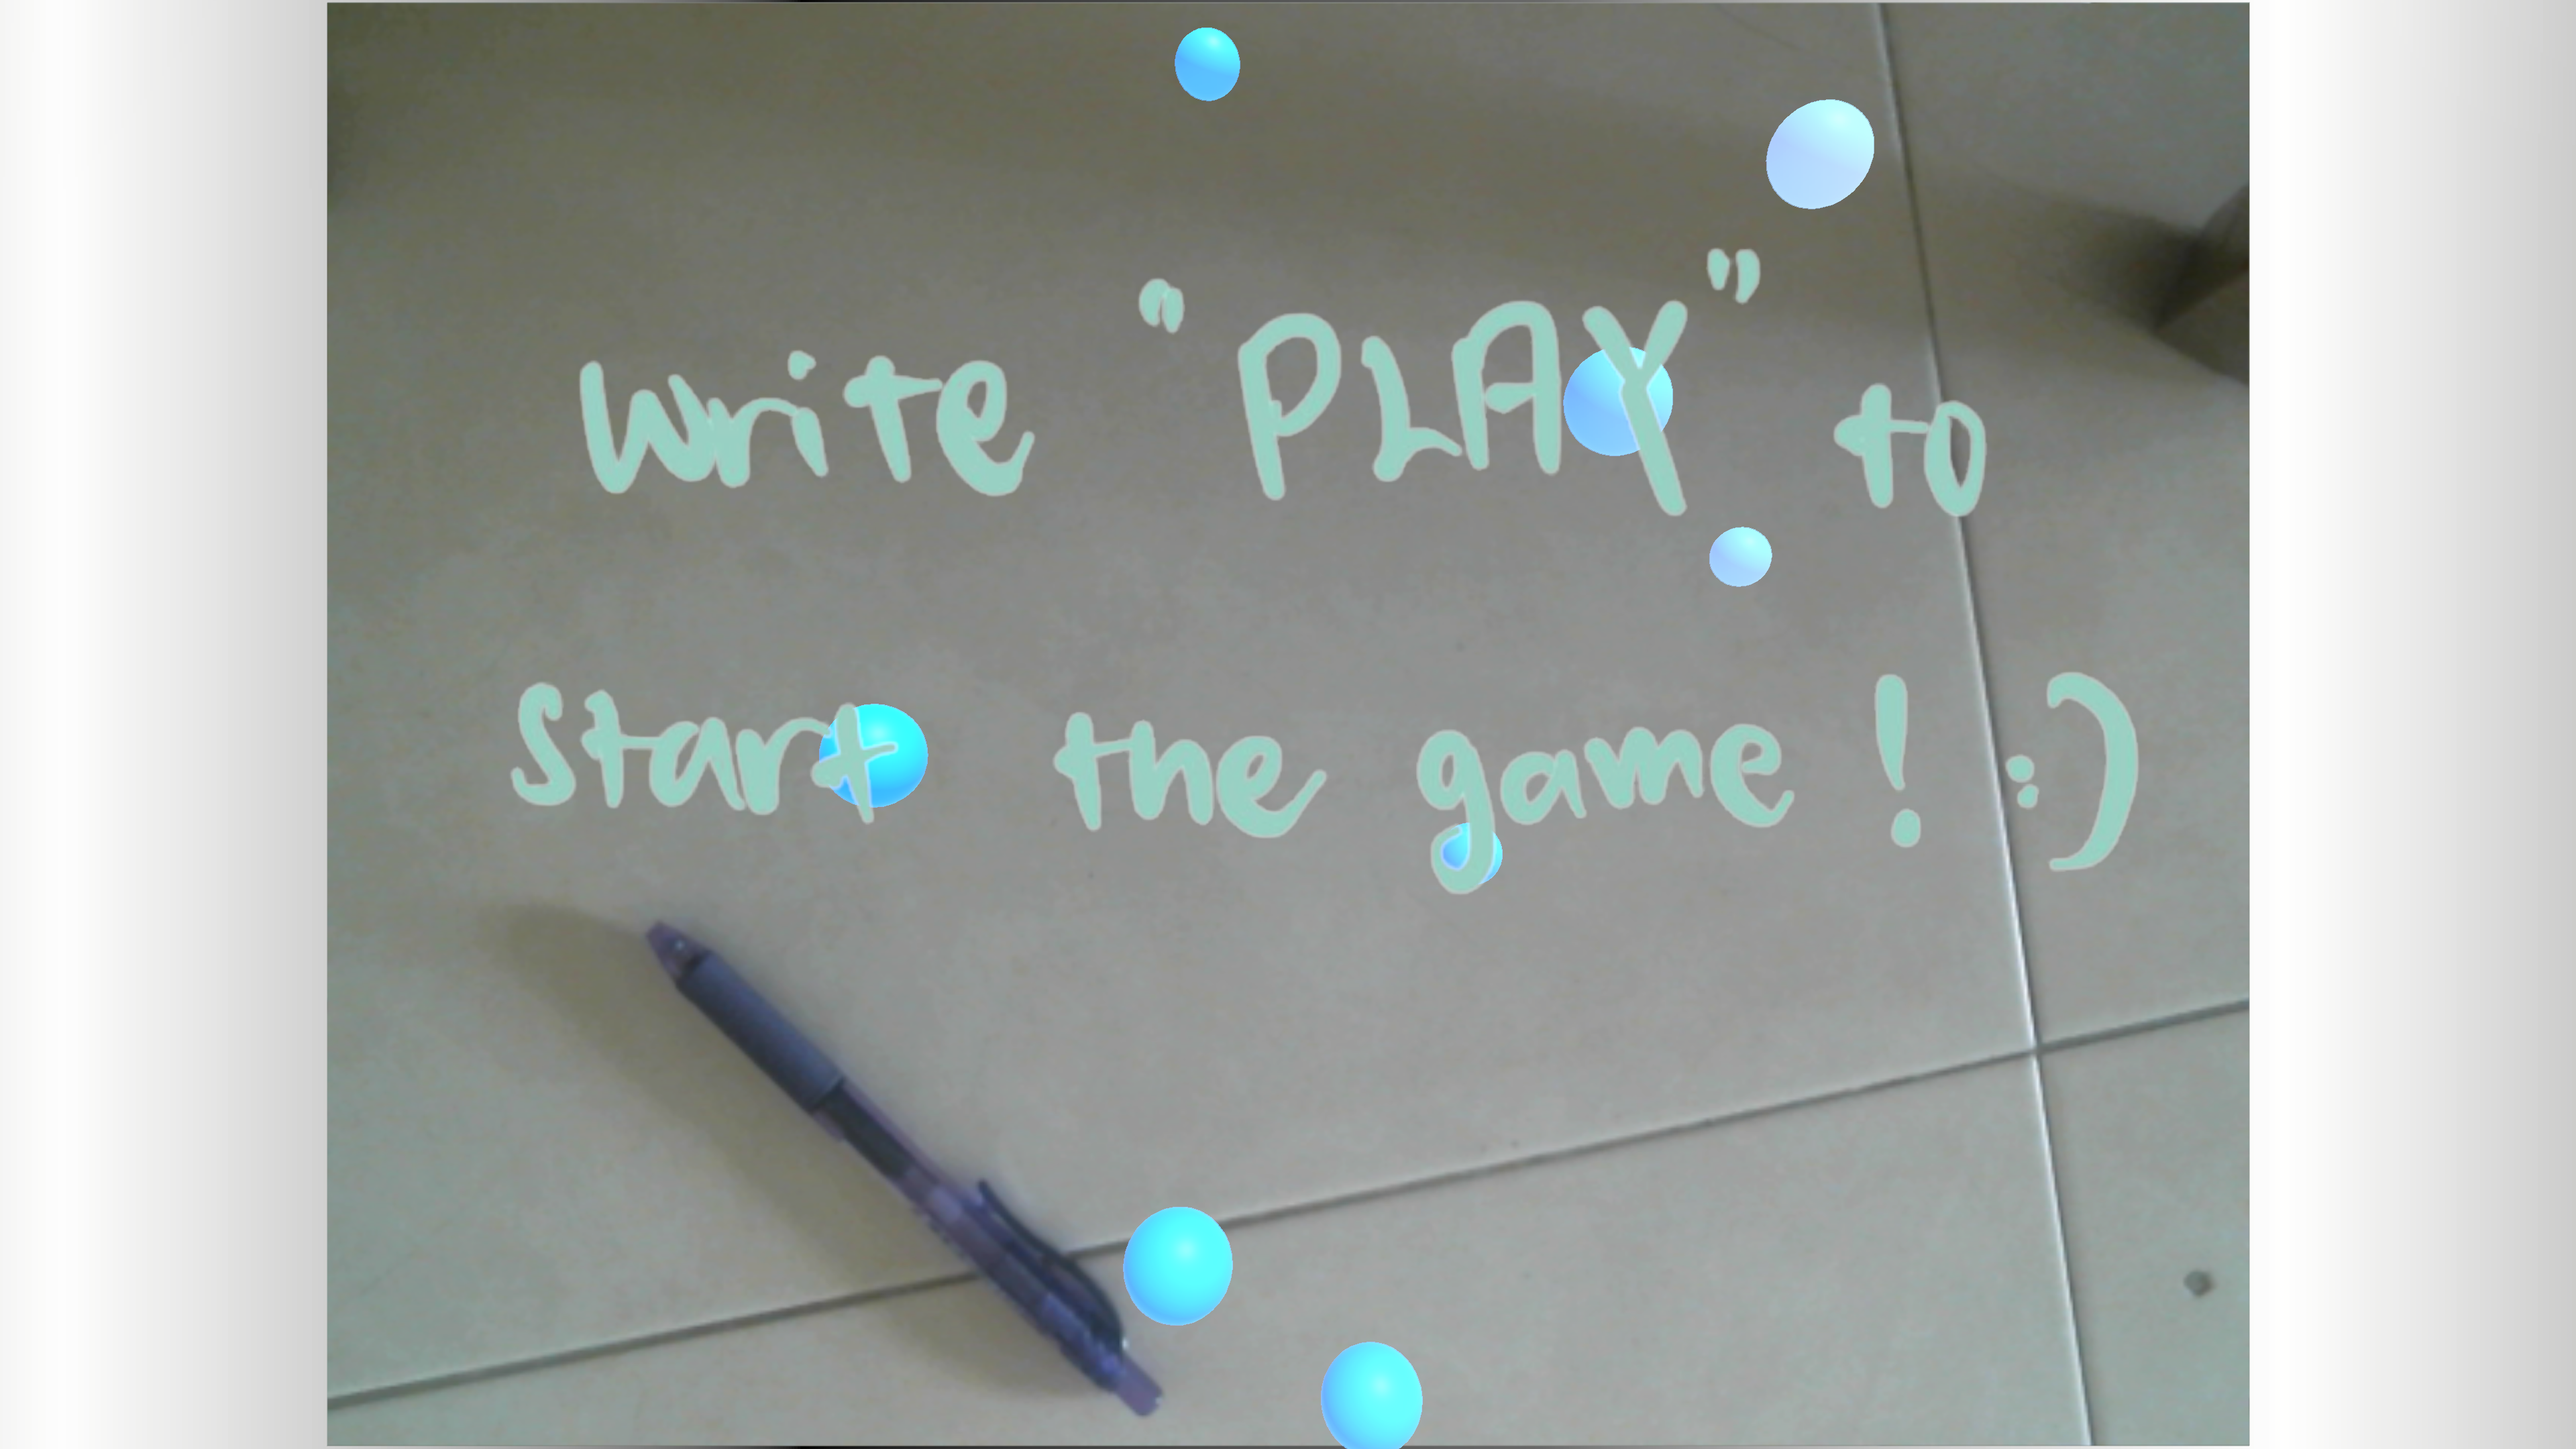 write "PLAY" to
Start the game! :)